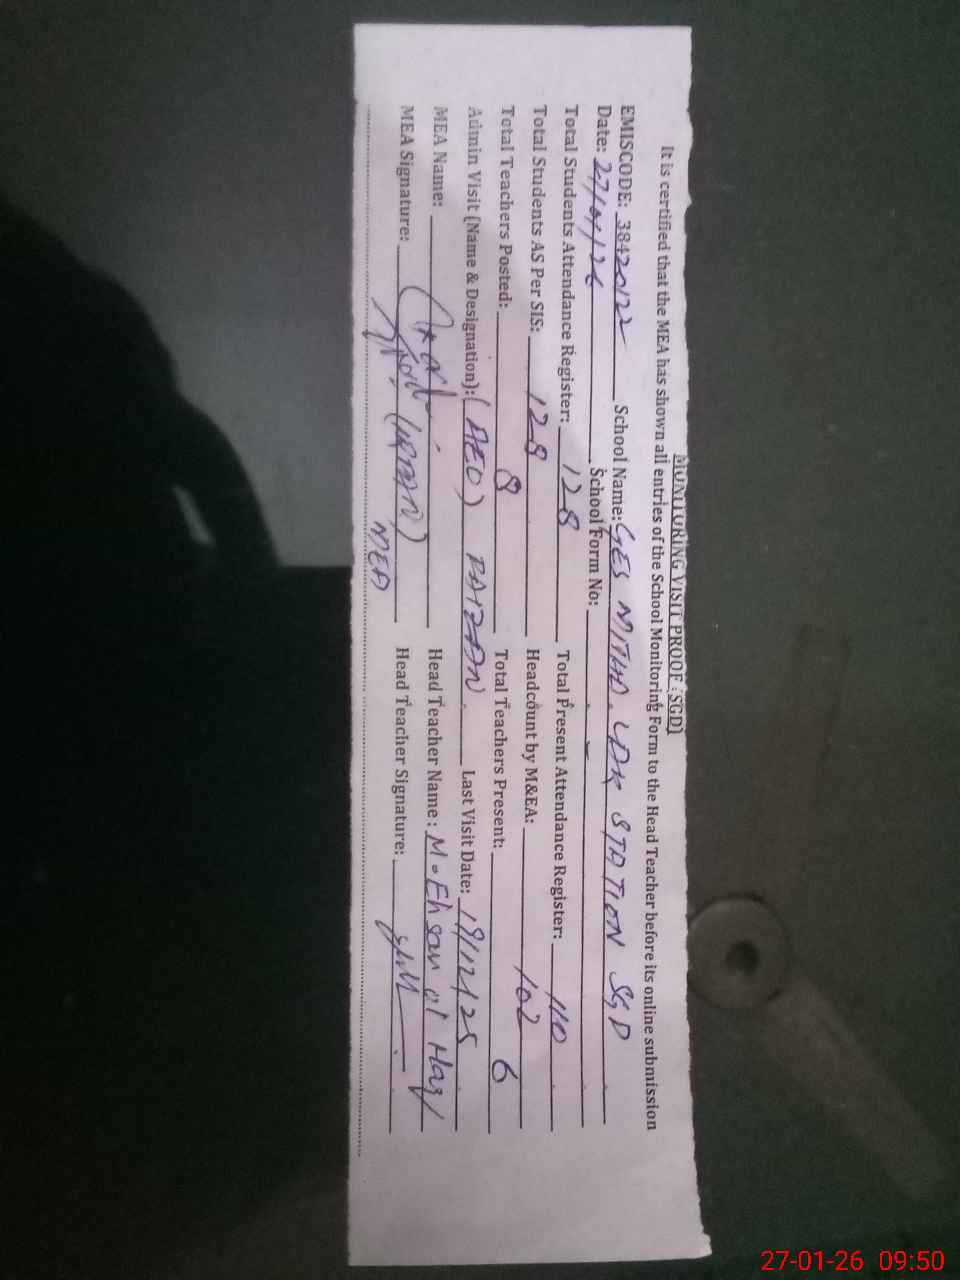 MONITORING VISIT PROOF (SGD)
It is certified that the MEA has shown all entries of the School Monitoring Form to the Head Teacher before its online submission
EMISCODE: 38420122 School Name: GES MITHA LDK STATION SGD
Date: 27/01/26 School Form No:
Total Students Attendance Register: 128 Total Present Attendance Register: 110
Total Students AS Per SIS: 128 Headcount by M&EA: 102
Total Teachers Posted: 8 Total Teachers Present: 6
Admin Visit (Name & Designation): (AEO) Last Visit Date: 19/12/25
MEA Name: Head Teacher Name: M. Ehsan ul Haq
MEA Signature: MEA Head Teacher Signature:
27-01-26 09:50